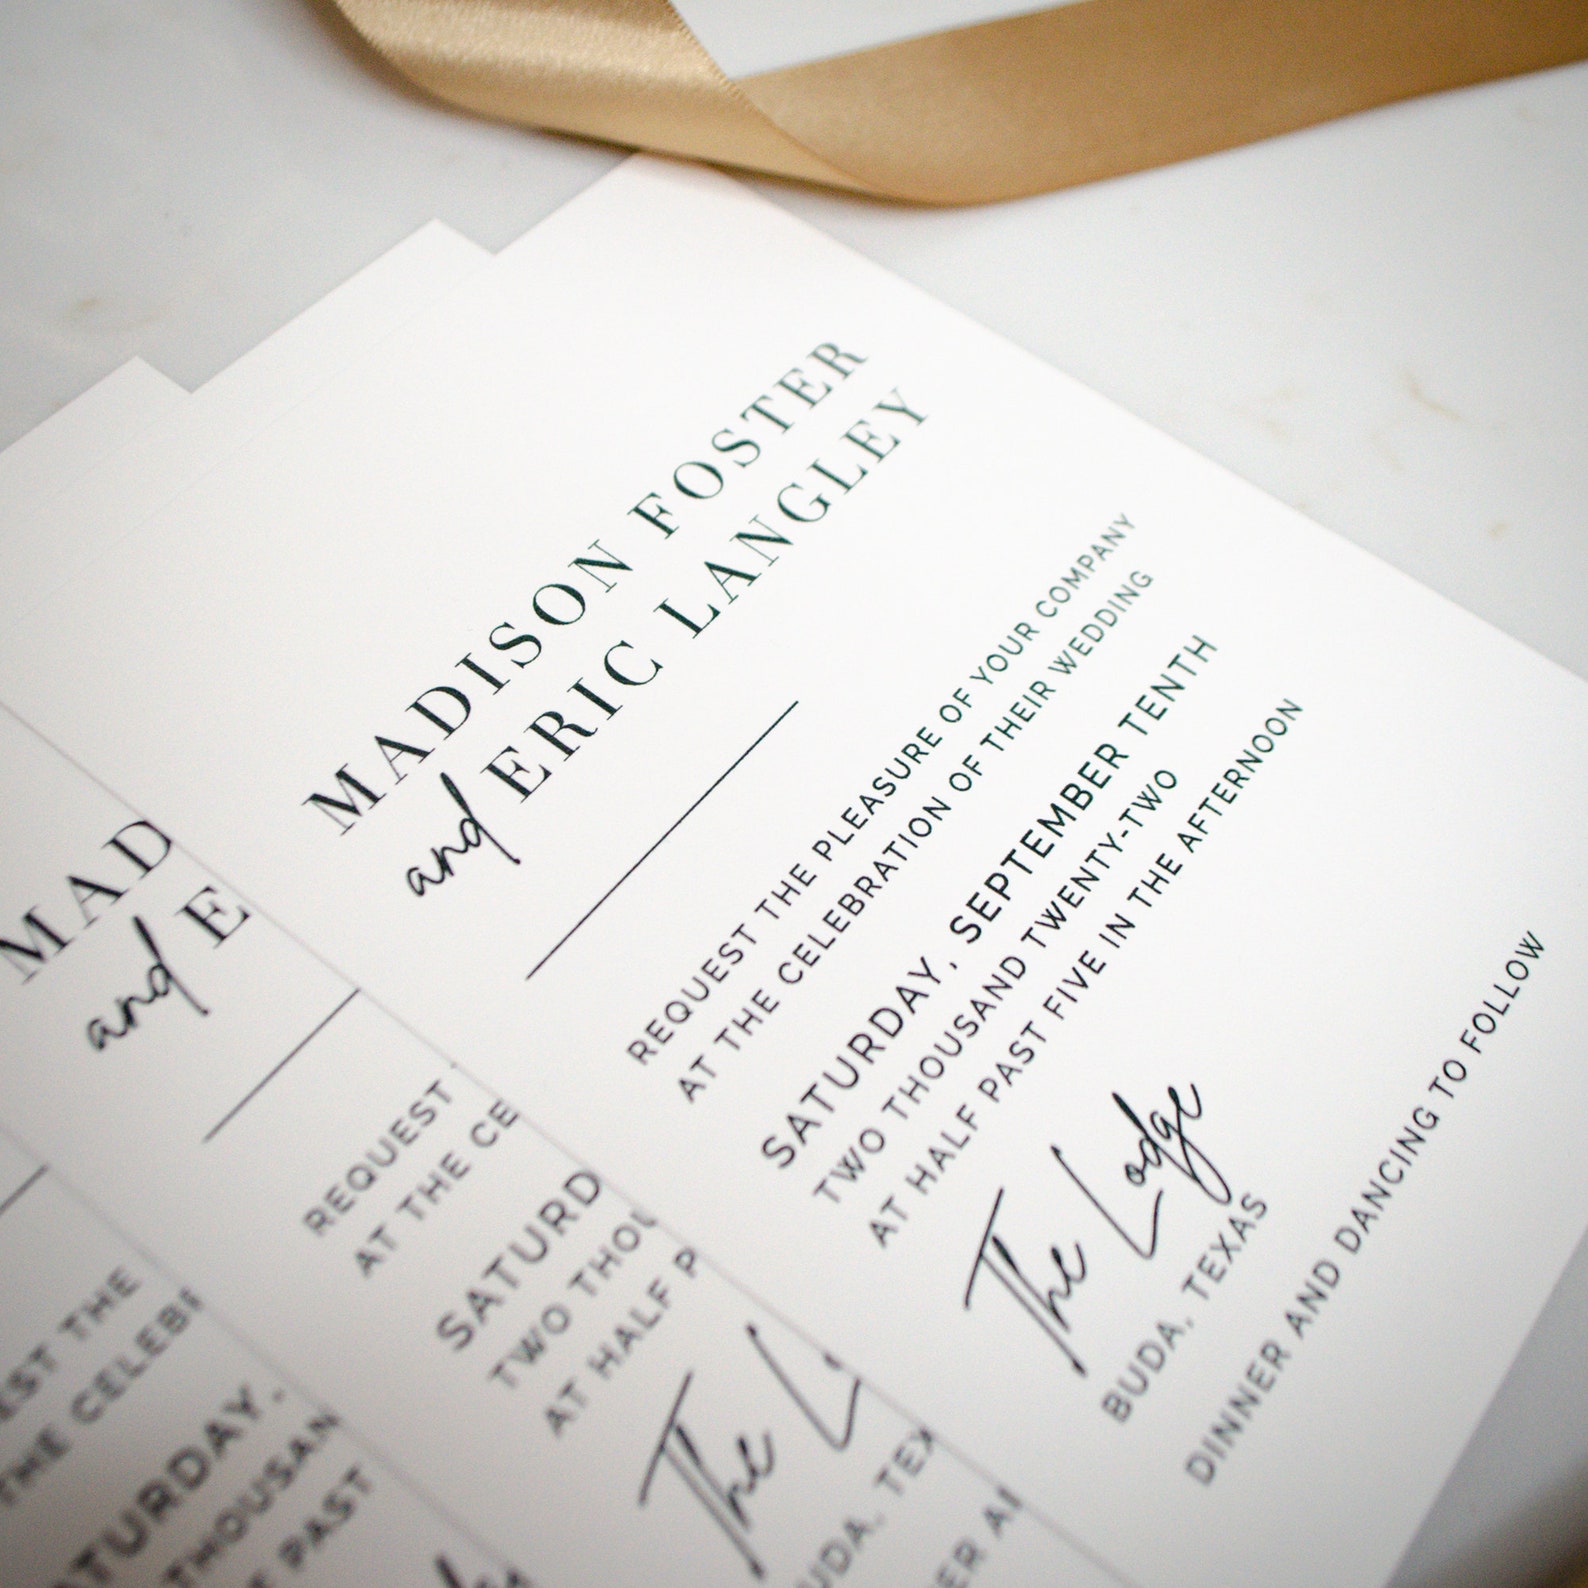 MADISON FOSTER
and ERIC LANGLEY
REQUEST THE PLEASURE OF YOUR COMPANY
AT THE CELEBRATION OF THEIR WEDDING
SATURDAY, SEPTEMBER TENTH
TWO THOUSAND TWENTY-TWO
AT HALF PAST FIVE IN THE AFTERNOON
The Lodge
BUDA, TEXAS
DINNER AND DANCING TO FOLLOW
MAD
and E
REQUEST
AT THE CE
SATURD
TWO THOU
AT HALF P
The L
BUDA, TEX
ER AN
EST THE
THE CELEBR
ATURDAY,
THOUSAN
PAST